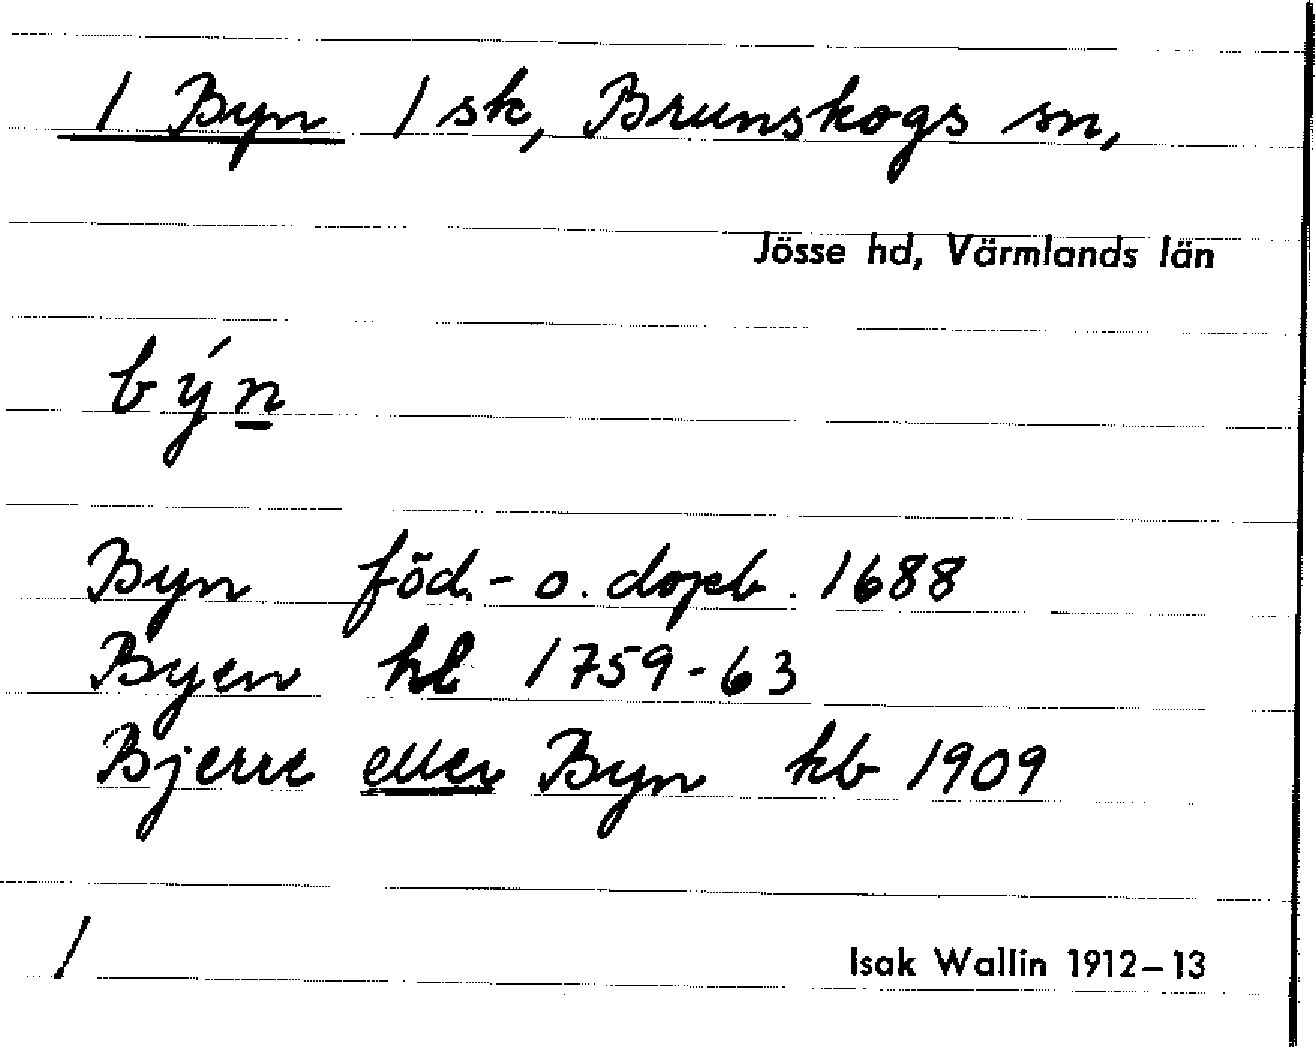 1 Byn 1 sk, Brunskogs sn,
Jösse hd, Värmlands län
býn
Byn föd.- o. dopb. 1688
Byen hl 1759-63
Bjerre eller Byn kb 1909
1
Isak Wallin 1912–13